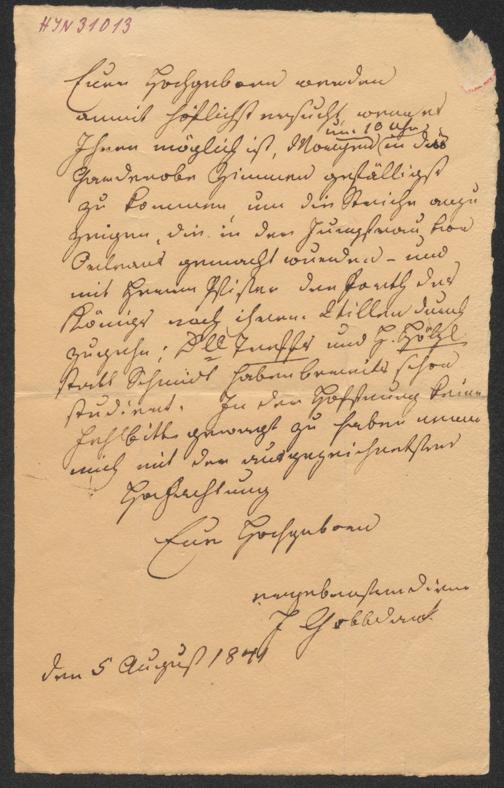 HIN 31013
Euer Hochgeboren werden
anmit höflichst ersucht, wenn es
um 10 Uhr
Ihnen möglich ist, Morgen in das
Garderobe Zimmer gefälligst
zu kommen um die Striche anzu
zeigen, die in der Jungfrau von
Orleans gemacht wurden - und
mit Herrn Pister den Parth des
Königs nach ihrem Willen durch
zugehn; Dlle Treffz und H. Hölzl
statt Schmidt haben bereits schon
studiert. In der Hoffnung keine
Fehlbitte gewagt zu haben nenne
mich mit der ausgezeichnetsten
Hochachtung
Euer Hochgeboren
ergebenster Diener
J Gottdank
den 5 August 1841